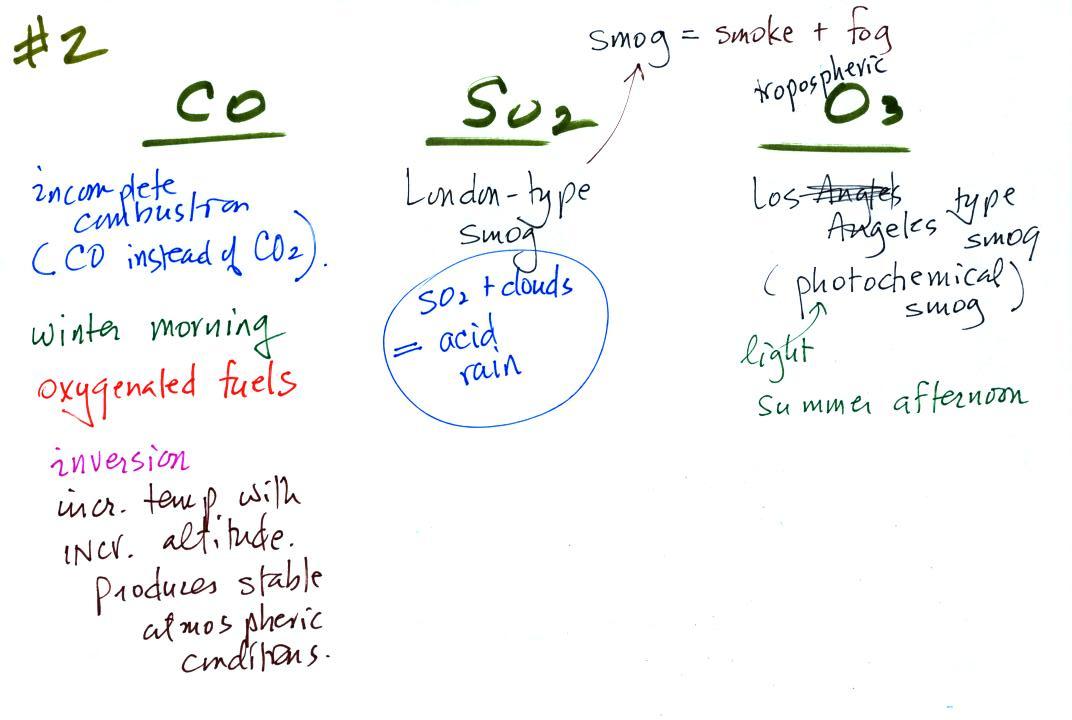 #2
smog = smoke + fog
CO
SO2
tropospheric
O3
incomplete
combustion
(CO instead of CO2).
winter morning
oxygenated fuels
inversion
incr. temp with
incr. altitude.
Produces stable
atmospheric
conditions.
London-type
smog
SO2 + clouds
= acid
rain
Los Angles type
Angeles smog
(photochemical
smog)
light
summer afternoon